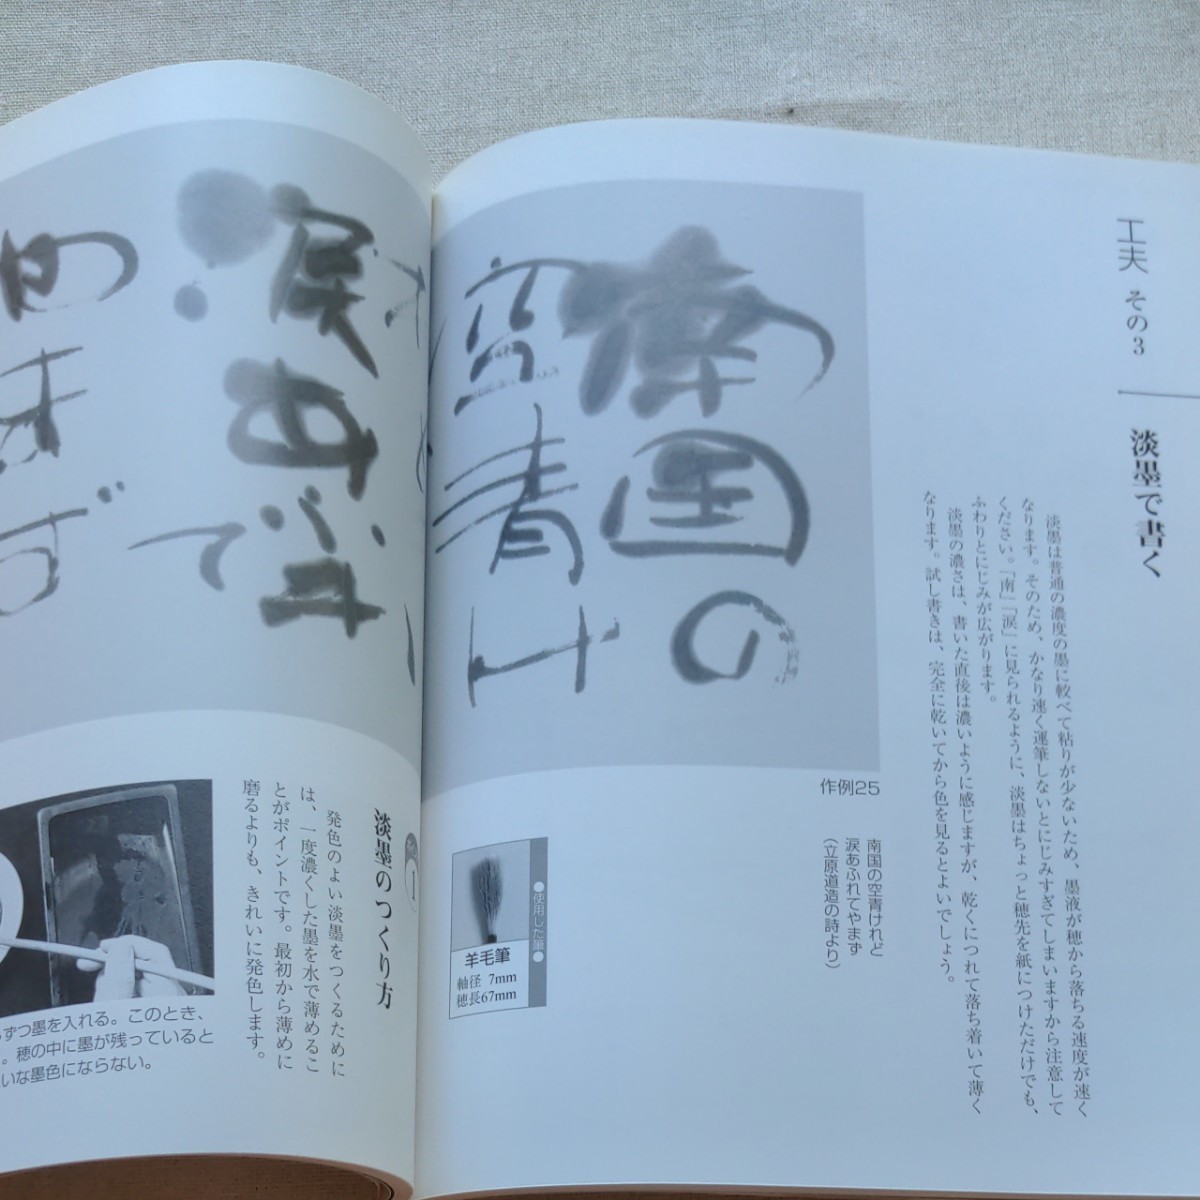 工夫 その3
淡墨で書く
淡墨は普通の濃度の墨に較べて粘りが少ないため、墨液が穂から落ちる速度が速く
なります。そのため、かなり速く運筆しないとにじみすぎてしまいますから注意して
ください。「南」「涙」に見られるように、淡墨はちょっと穂先を紙につけただけでも、
ふわりとにじみが広がります。
淡墨の濃さは、書いた直後は濃いように感じますが、乾くにつれて落ち着いて薄く
なります。試し書きは、完全に乾いてから色を見るとよいでしょう。
南国の
空青け
作例25
南国の空青けれど
涙あふれてやまず
(立原道造の詩より)
●使用した筆●
羊毛筆
軸径 7mm
穂長67mm
涙あふ
で
やま
ず
1
淡墨のつくり方
発色のよい淡墨をつくるために
は、一度濃くした墨を水で薄めるこ
とがポイントです。最初から薄めに
磨るよりも、きれいに発色します。
ずつ墨を入れる。このとき、
。穂の中に墨が残っていると
いな墨色にならない。